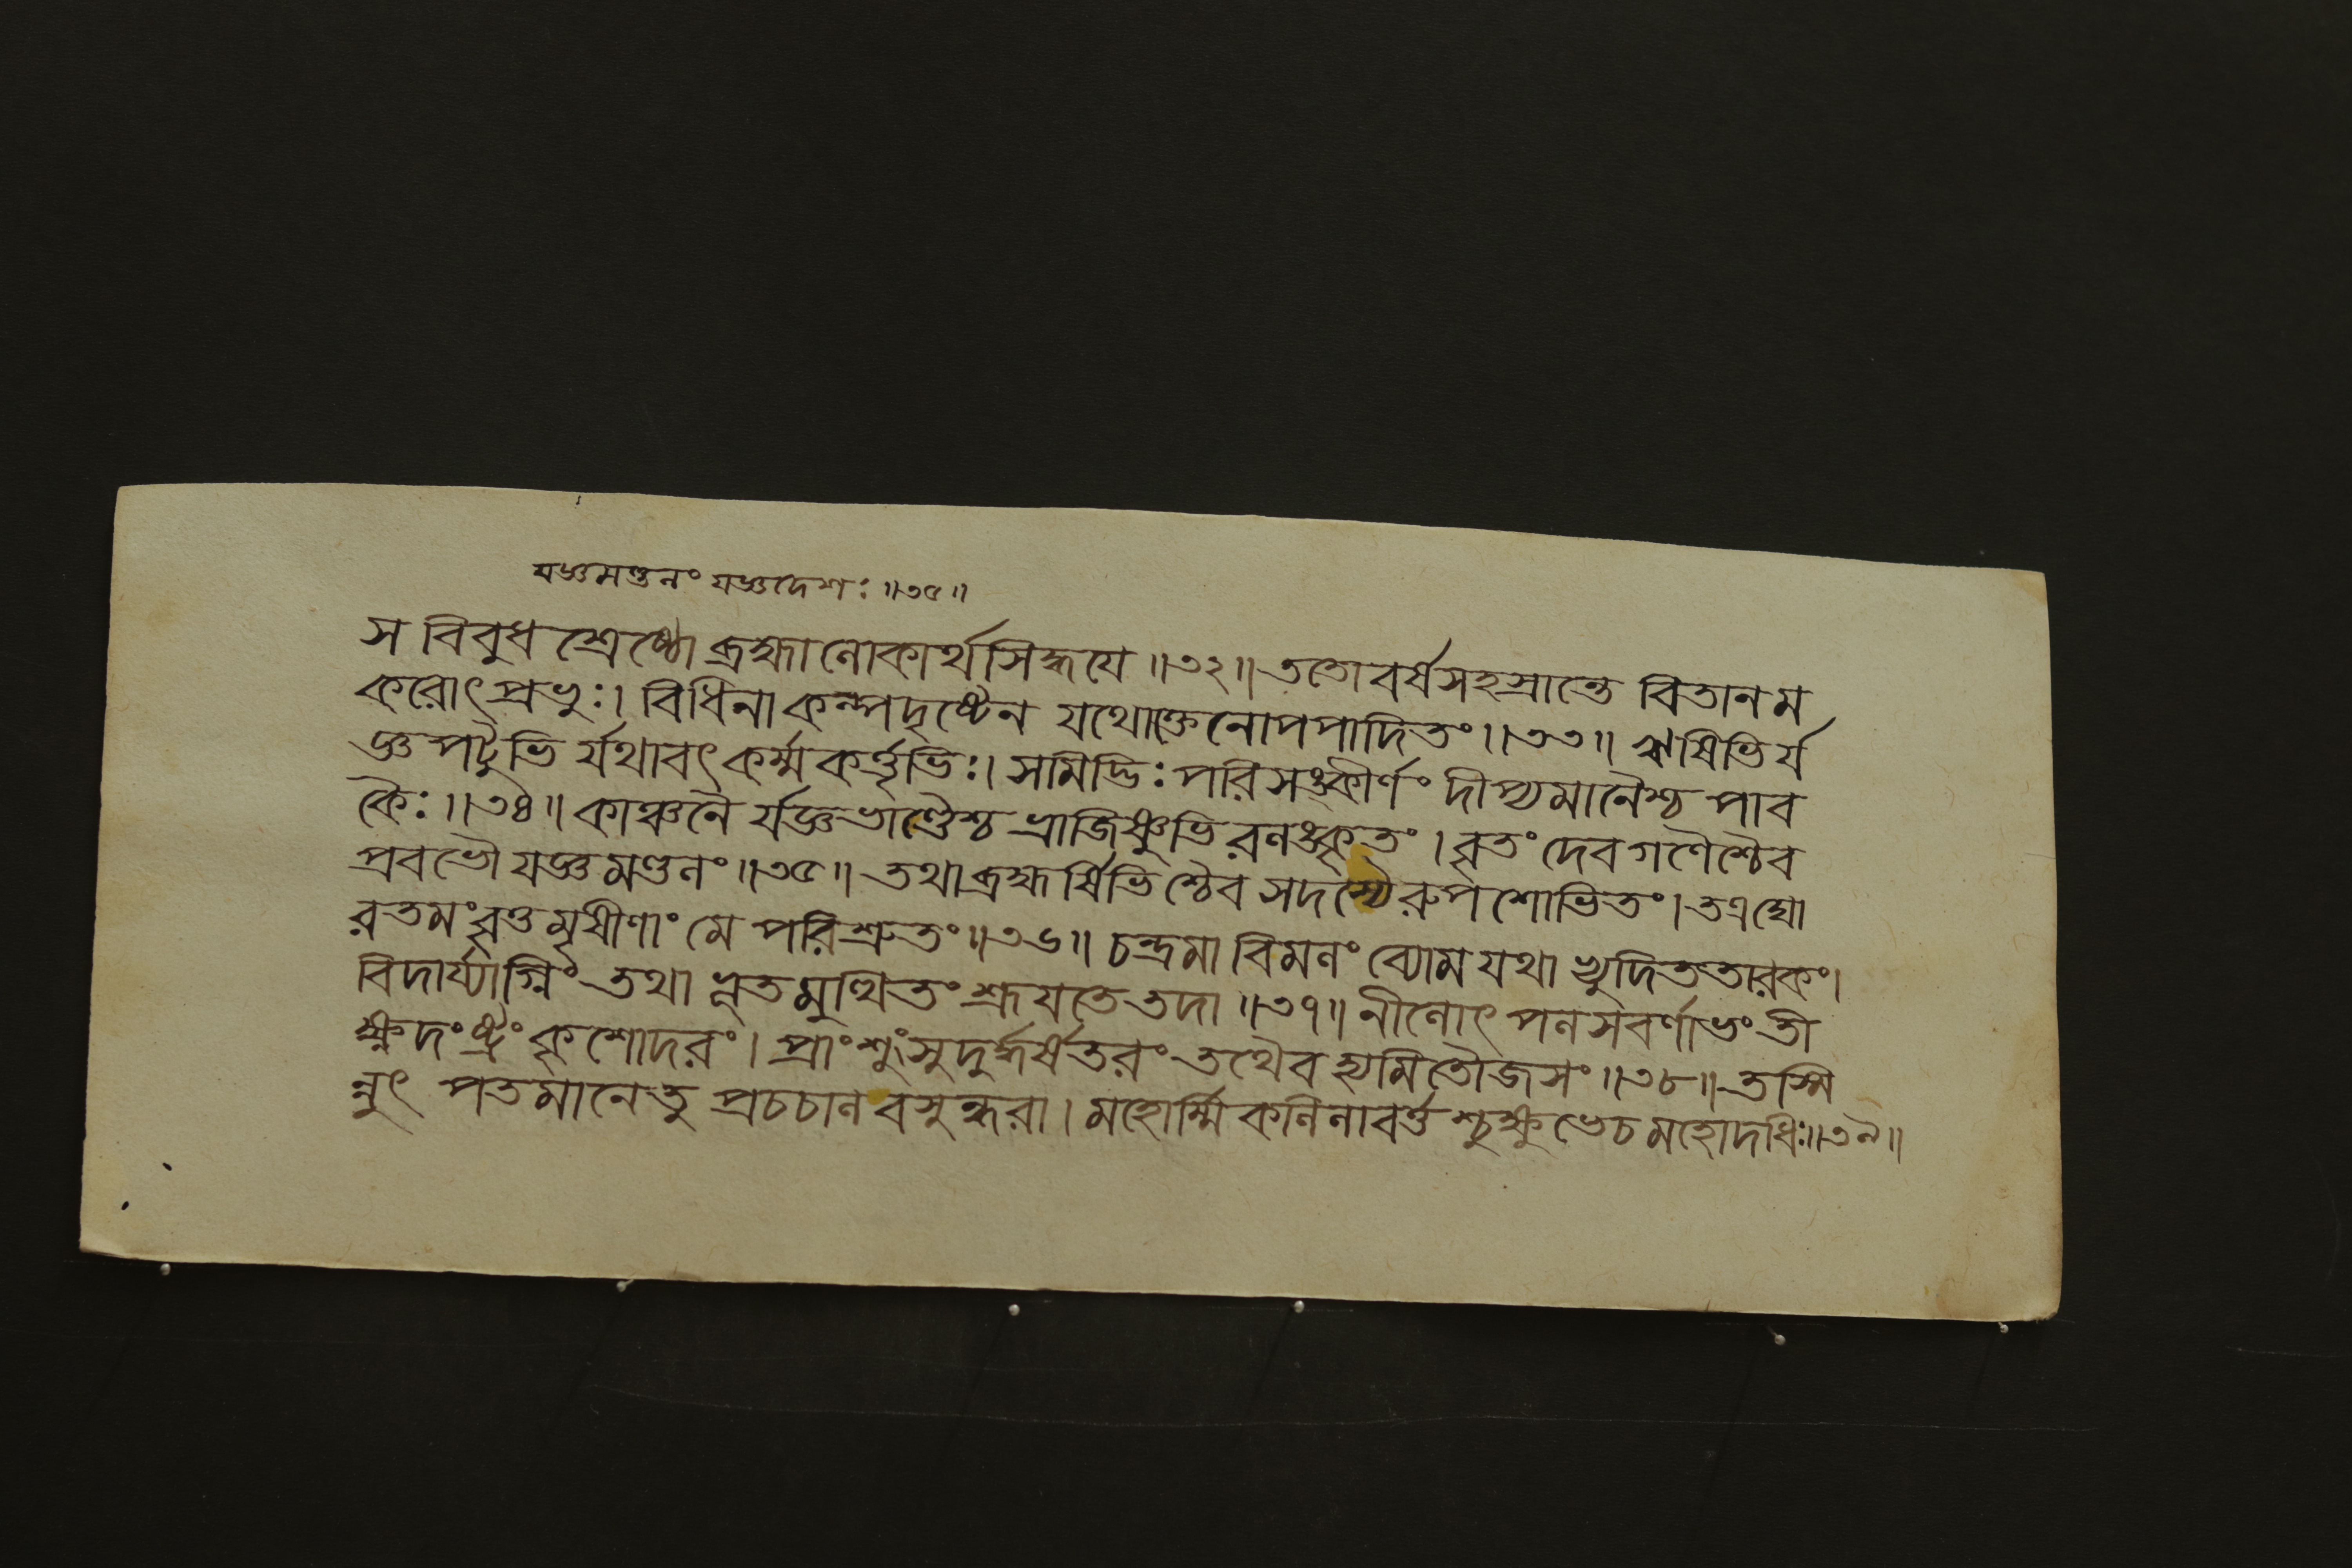 যজ্ঞমণ্ডলং যজ্ঞদেশঃ ॥৩৫॥
স বিবুধ শ্রেষ্ঠো ব্রহ্মা লোকার্থসিদ্ধযে ॥৩২॥ ততো বর্ষসহস্রান্তে বিতানম
করোৎ প্রভুঃ। বিধিনা কল্পদৃষ্টেন যথোক্তেনোপপাদিতং ॥৩৩॥ ঋষিভির্য
জ্ঞপটুভি র্যথাবৎ কর্ম্মকর্ত্তৃভিঃ। সমিদ্ভিঃ পরিসঙ্কীর্ণং দীপ্যমানৈশ্চ পাব
কৈঃ ॥৩৪॥ কাঞ্চনৈ র্যজ্ঞভাণ্ডৈশ্চ ভ্রাজিষ্ণুভি রলঙ্কৃতং। বৃতং দেবগণৈশ্চৈব
প্রবভৌ যজ্ঞমণ্ডলং ॥৩৫॥ তথা ব্রহ্মর্ষিভিশ্চৈব সদস্যৈরুপশোভিতং। তত্র ঘো
রতমং বৃত্তমৃষীণাং মে পরিশ্রুতং ॥৩৬॥ চন্দ্রমা বিমলং ব্যোম যথা ভ্যুদিততারকং।
বিদার্য্যাগ্নিং তথা ভূতমুত্থিতং শ্রূযতে তদা ॥৩৭॥ নীলোৎপলসবর্ণাভং তী
ক্ষ্ণদংষ্ট্রং কৃশোদরং। প্রাংশুং সুদুর্দ্ধর্ষতরং তথৈব হ্যমিতৌজসং ॥৩৮॥ তস্মি
ন্নুৎপতমানে তু প্রচচাল বসুন্ধরা। মহোর্ম্মিকলিলাবর্ত্ত শ্চুক্ষুভে চ মহোদধিঃ ॥৩৯॥